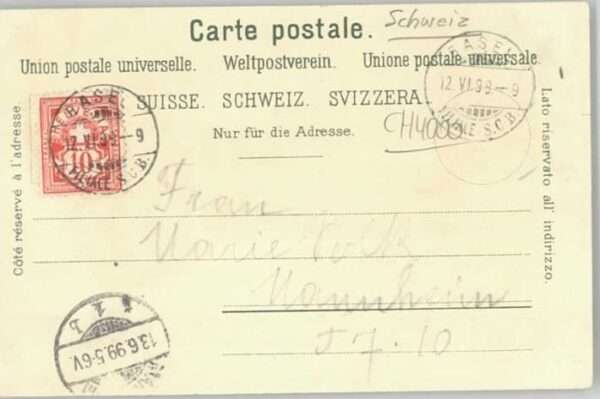 Carte postale.
Schweiz
Union postale universelle. Weltpostverein. Unione postale universale.
SUISSE. SCHWEIZ. SVIZZERA
Nur für die Adresse.
CH4000
Côté réservé à l'adresse.
Lato riservato all' indirizzo.
BASEL
12.VI.99-9
FILIALE S.C.B.
10
BASEL
12.VI.99-9
FILIALE S.C.B.
Frau
Marie
Mannheim
J 7.10
1 b
13.6.99.5-6V.